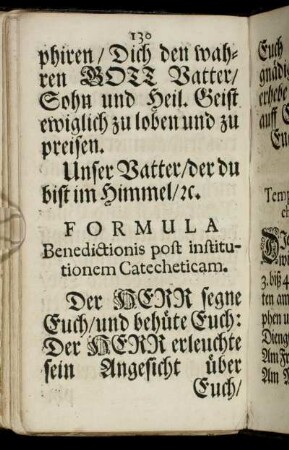 130
phiren / Dich den wah-
ren GOTT Vatter /
Sohn und Heil. Geist
ewiglich zu loben und zu
preisen.
Unser Vatter / der du
bist im Himmel / ꝛc.
FORMULA
Benedictionis post institu-
tionem Catecheticam.
Der HERR segne
Euch / und behüte Euch:
Der HERR erleuchte
sein Angesicht über
Euch /
Euch
gnädig
erhebe
auff
3. biß 4
ten am
phen u
Am Fr